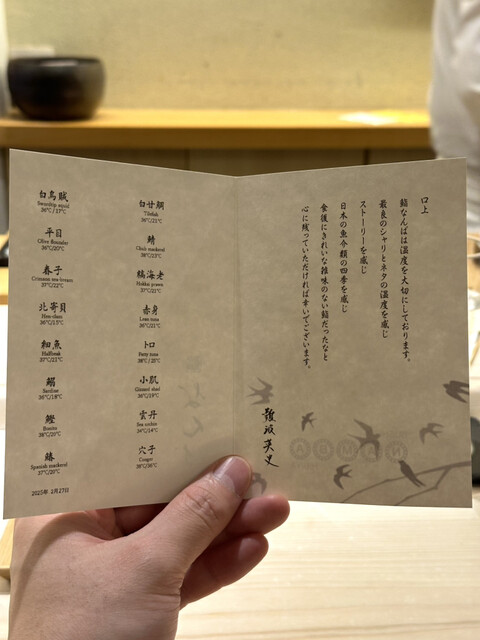 白烏賊
Swordtip squid
36℃/17℃
平目
Olive flounder
36℃/20℃
春子
Crimson sea bream
37℃/22℃
北寄貝
Hen-clam
36℃/15℃
細魚
Halfbeak
37℃/21℃
鰯
Sardine
36℃/18℃
鰹
Bonito
38℃/20℃
鰆
Spanish mackerel
37℃/20℃
2025年 1月27日
白甘鯛
Tilefish
36℃/21℃
鯖
Chub mackerel
38℃/23℃
縞海老
Hokkai prawn
37℃/21℃
赤身
Lean tuna
36℃/21℃
トロ
Fatty tuna
38℃/25℃
小肌
Gizzard shad
36℃/19℃
雲丹
Sea urchin
34℃/14℃
穴子
Conger
38℃/36℃
口上
鮨なんばは温度を大切にしております。
最良のシャリとネタの温度を感じ
ストーリーを感じ
日本の魚介類の四季を感じ
食後にきれいな雑味のない鮨だったなと
心に残っていただければ幸いでございます。
難波英史